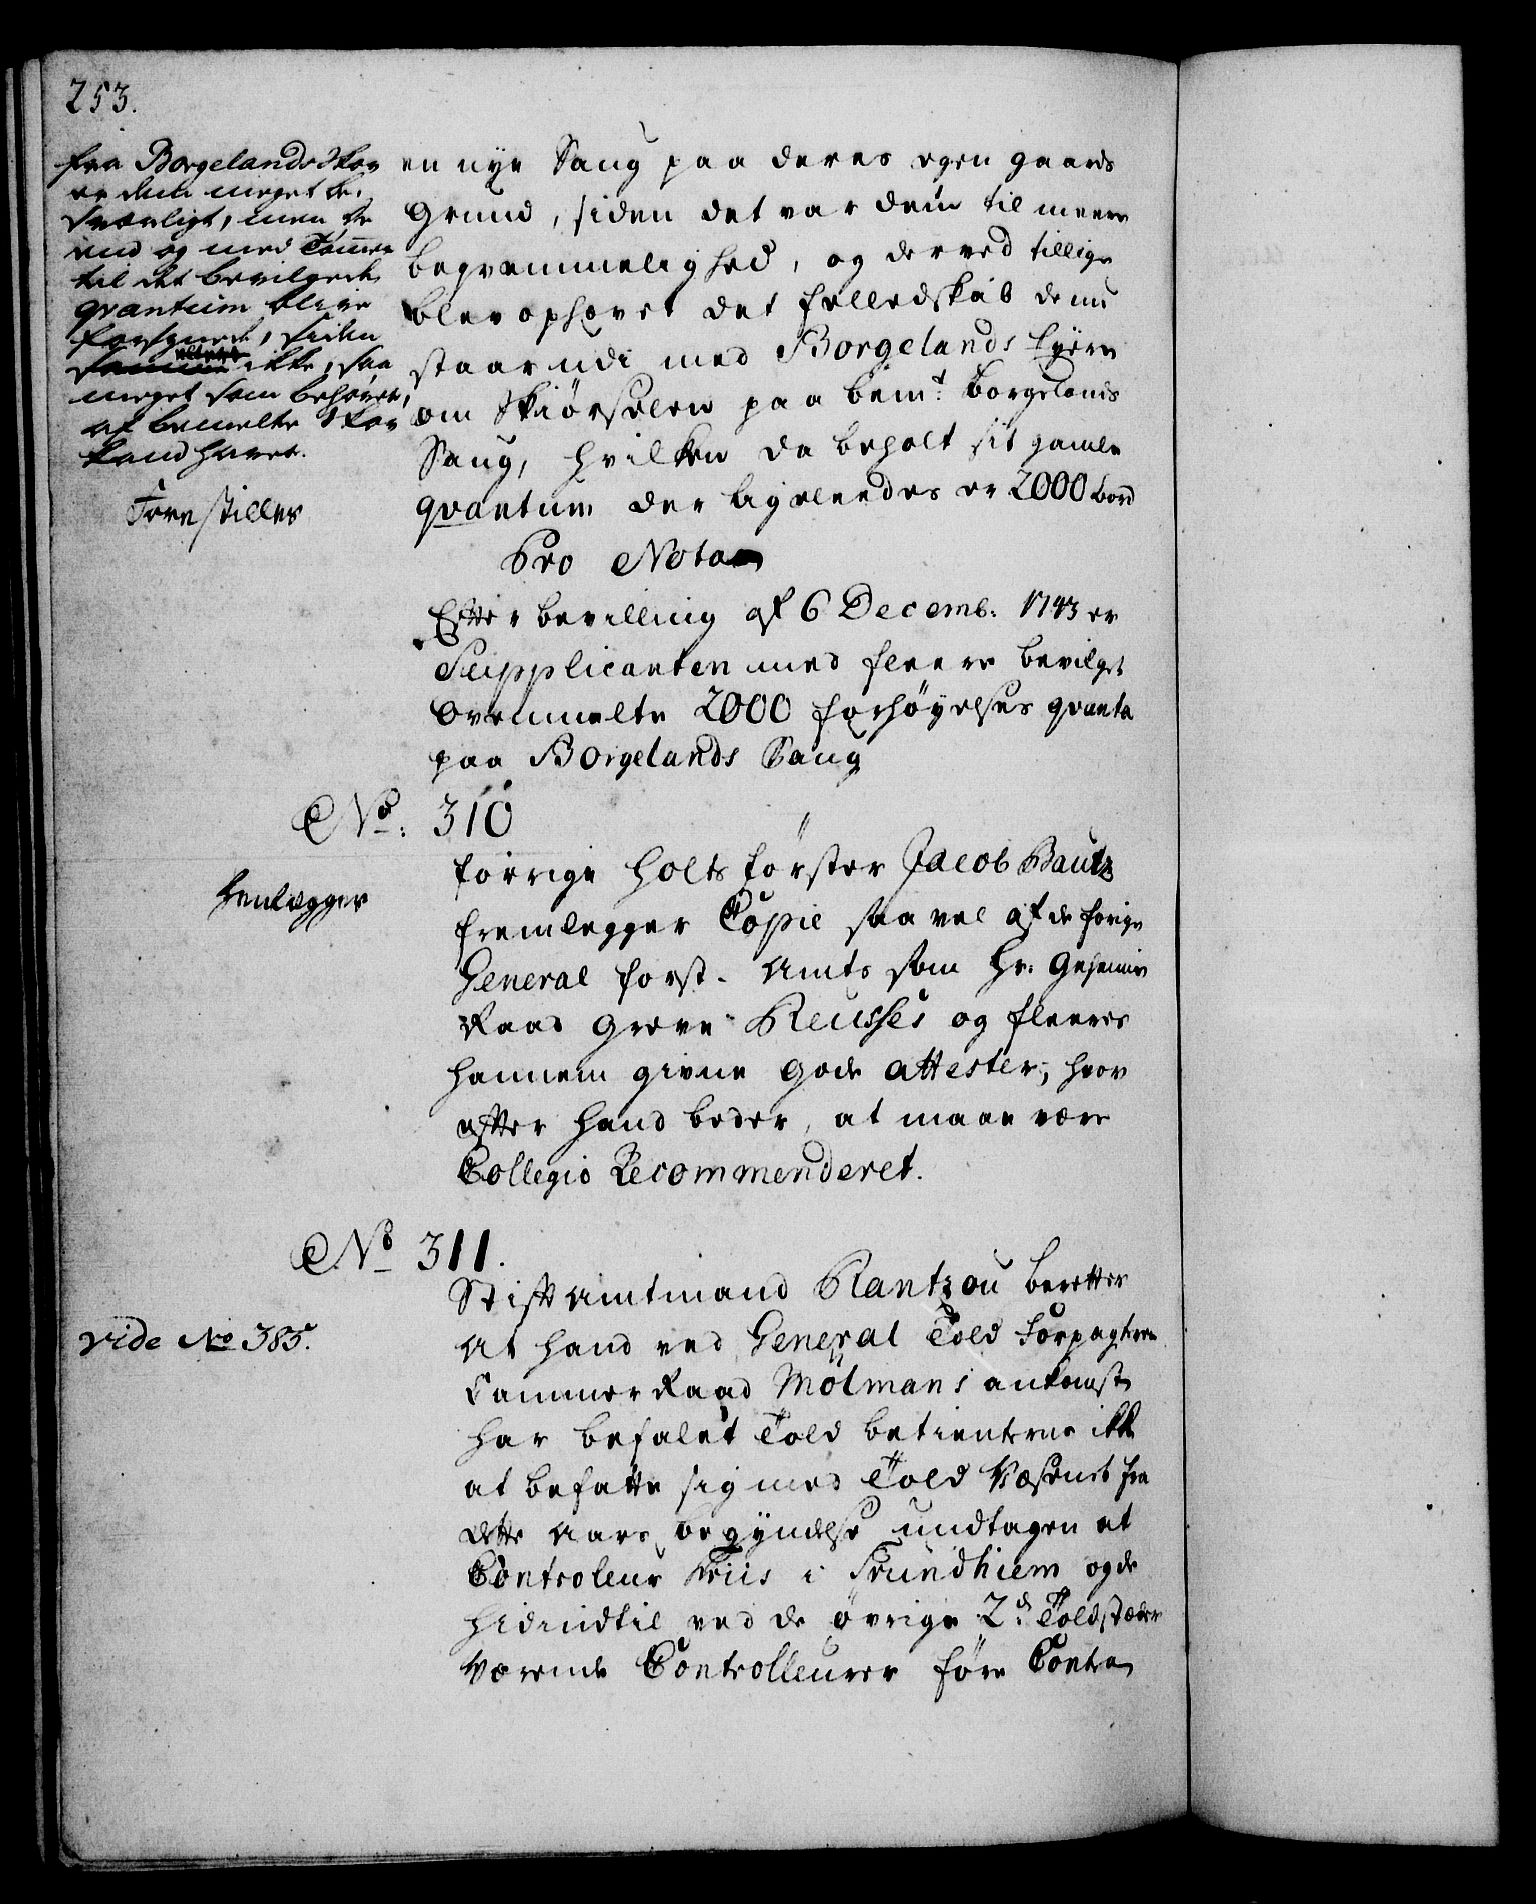 253.
fra Borgelands Skov
er dem meget be-
sværligt, men de
end og med Tømmer
til det bevilgede
qvantum blive
forsynet, siden
ikke, saa
meget som behøves,
af bemelte Skov
kand haves.
Forestilles
en nye Saug paa deres egen gaards
Grund, siden det var dem til meere
beqvemmelighed, og derved tillige
blev ophævet det fælledskab de nu
staar udi med Borgelands Eyere
om Skiørselen paa bemt. Borgelands
Saug, hvilken da beholt sit gamle
qvantum der ligeleedes er 2000 bord
Pro Nota
Efter bevilling af 6 Decemb: 1743 er
Supplicanten med fleere bevilget
Ovenmelte 2000 forhøyelses qvanta
paa Borgelands Saug
No: 310
Henlegges
forrige Holtz förster Jacob Bautz
fremlegger Copie saa vel af de forige
General forst-Amts som Hr. Geheime
Raad Greve Reusses og fleeres
hannem givne gode attester, hvor
efter hand beder, at maae være
Collegio Recommenderet.
No 311.
vide No 385.
Stift Amtmand Rantzou beretter
At hand ved General Told Forpagteren
Cammer Raad Mölmans ankomst
har befalet Told betienterne ikke
at befatte sig med Told Væsenet fra
dette Aars begyndelse undtagen at
Controleur Friis i Trundhiem og de
hidindtil ved de øvrige 2de Toldstæder
Værende Controlleurer føre Contra